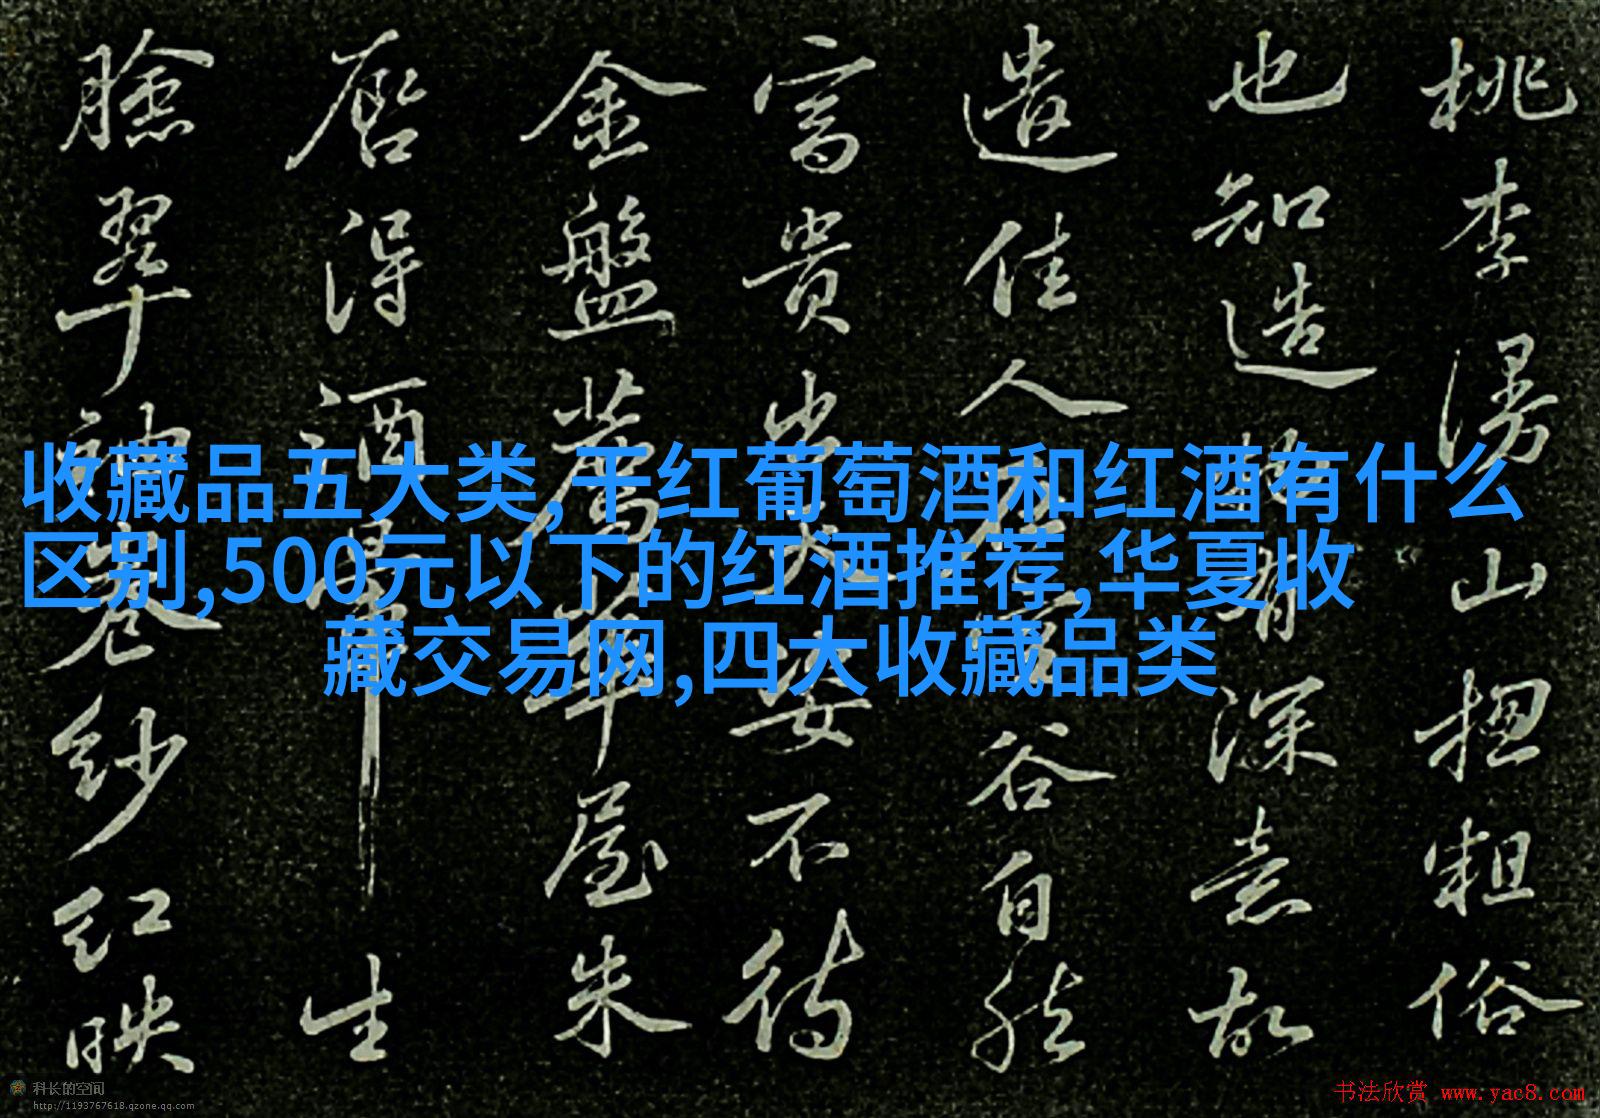 桃李漫山揔粗俗
也知造物有深意故
遣佳人在空谷自然
富貴出天姿不待
金盤薦華屋朱
唇得酒暈 生
臉翠袖卷紗紅映
收藏品五大类,干红葡萄酒和红酒有什么
区别,500元以下的红酒推荐,华夏收
藏交易网,四大收藏品类
科长的空间
http://1193767618.qzone.qq.com
书法欣赏 www.yac8.com